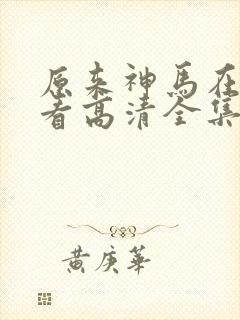 原来神馬在
看高清全集
黄庚華